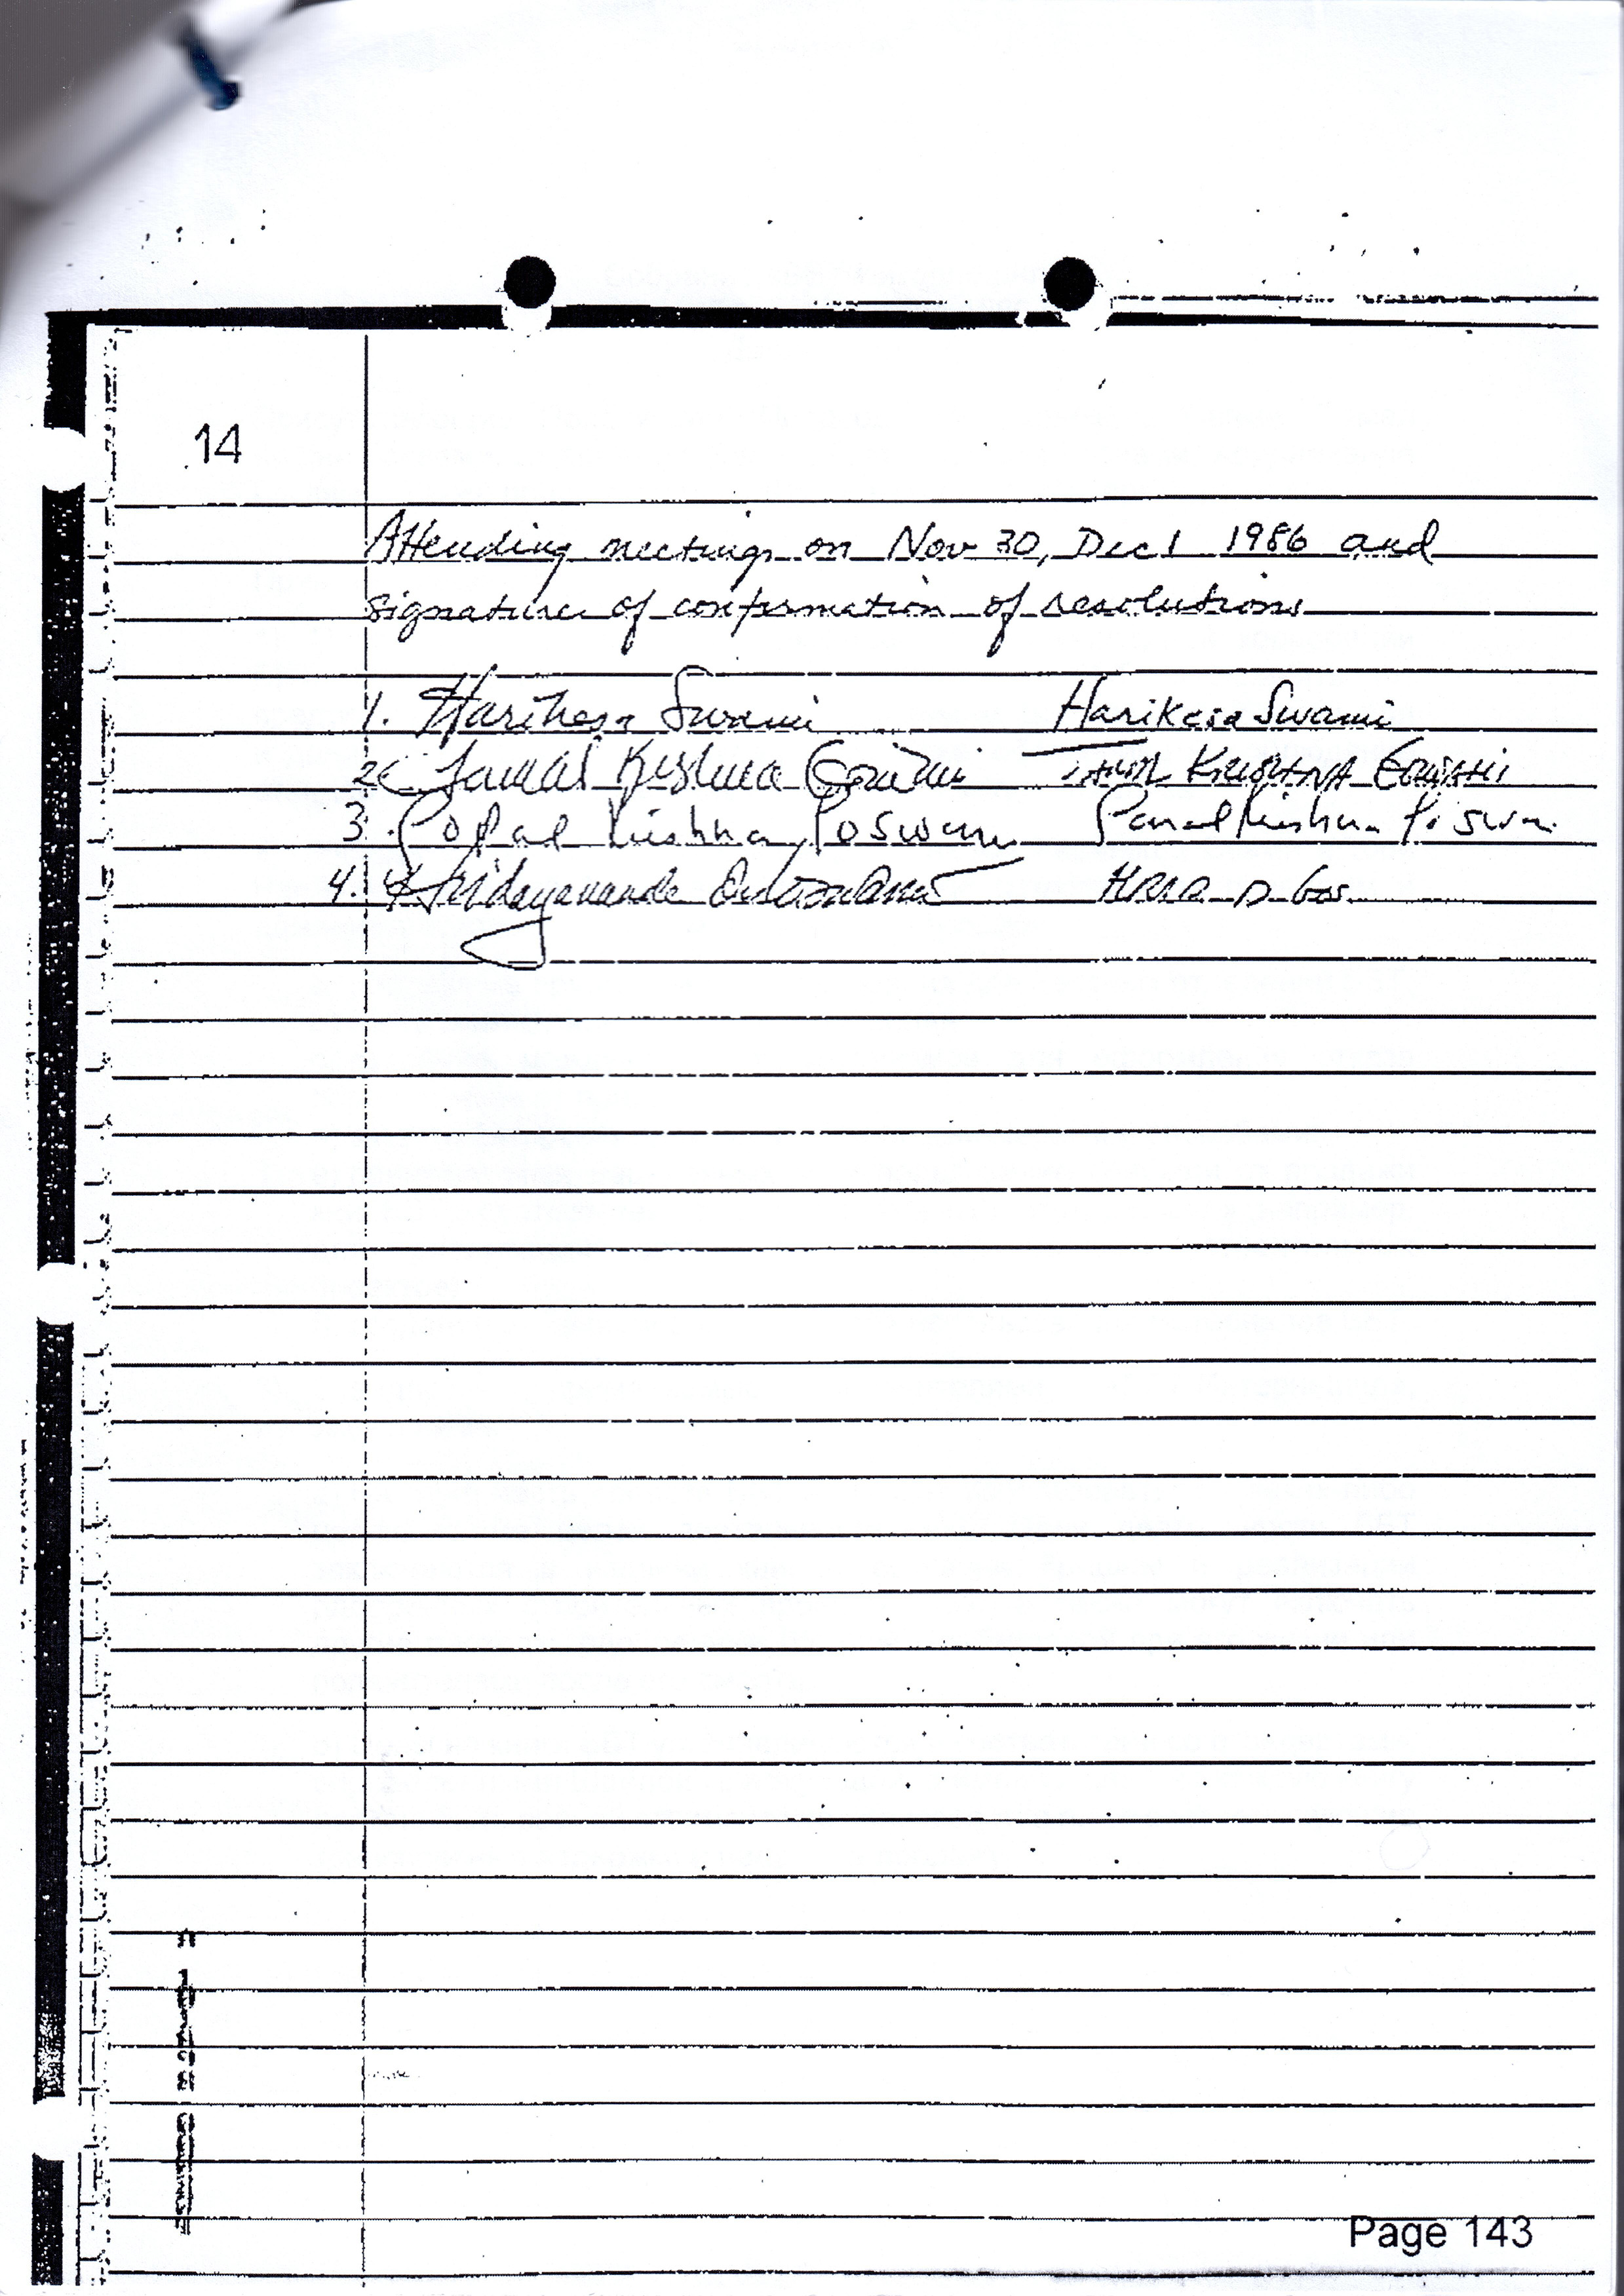 14
Attending meetings on Nov 30, Dec 1 1986 and
signature of confirmation of resolutions
1. Harikesa Swami Harikesa Swami
2 Tamal Krishna Goswami TAMAL KRISHNA GOSWAMI
3. Gopal Krishna Goswami Gopal Krishna Goswami
4. Hridayananda Goswami HRID. D. Gos.
Page 143